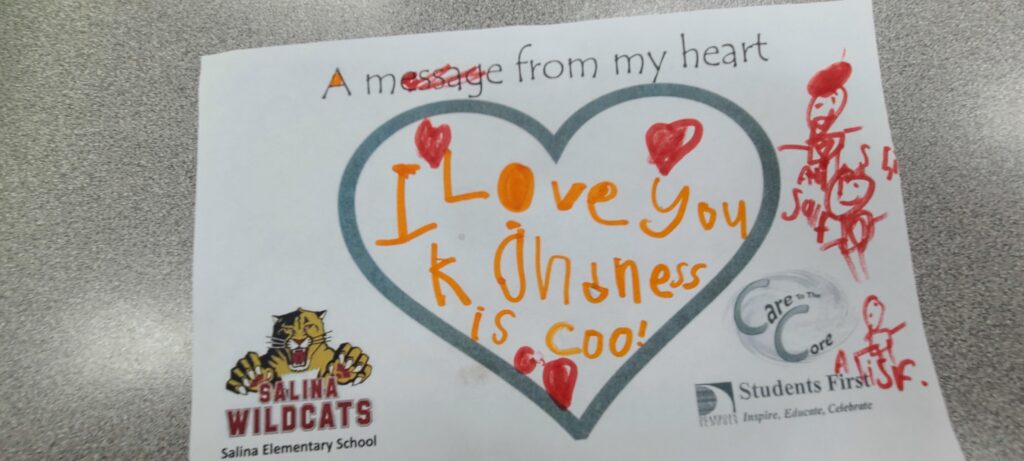 A message from my heart
I Love You
kindness
is coo!
SALINA
WILDCATS
Salina Elementary School
Care To The
Core
Students First
Inspire, Educate, Celebrate